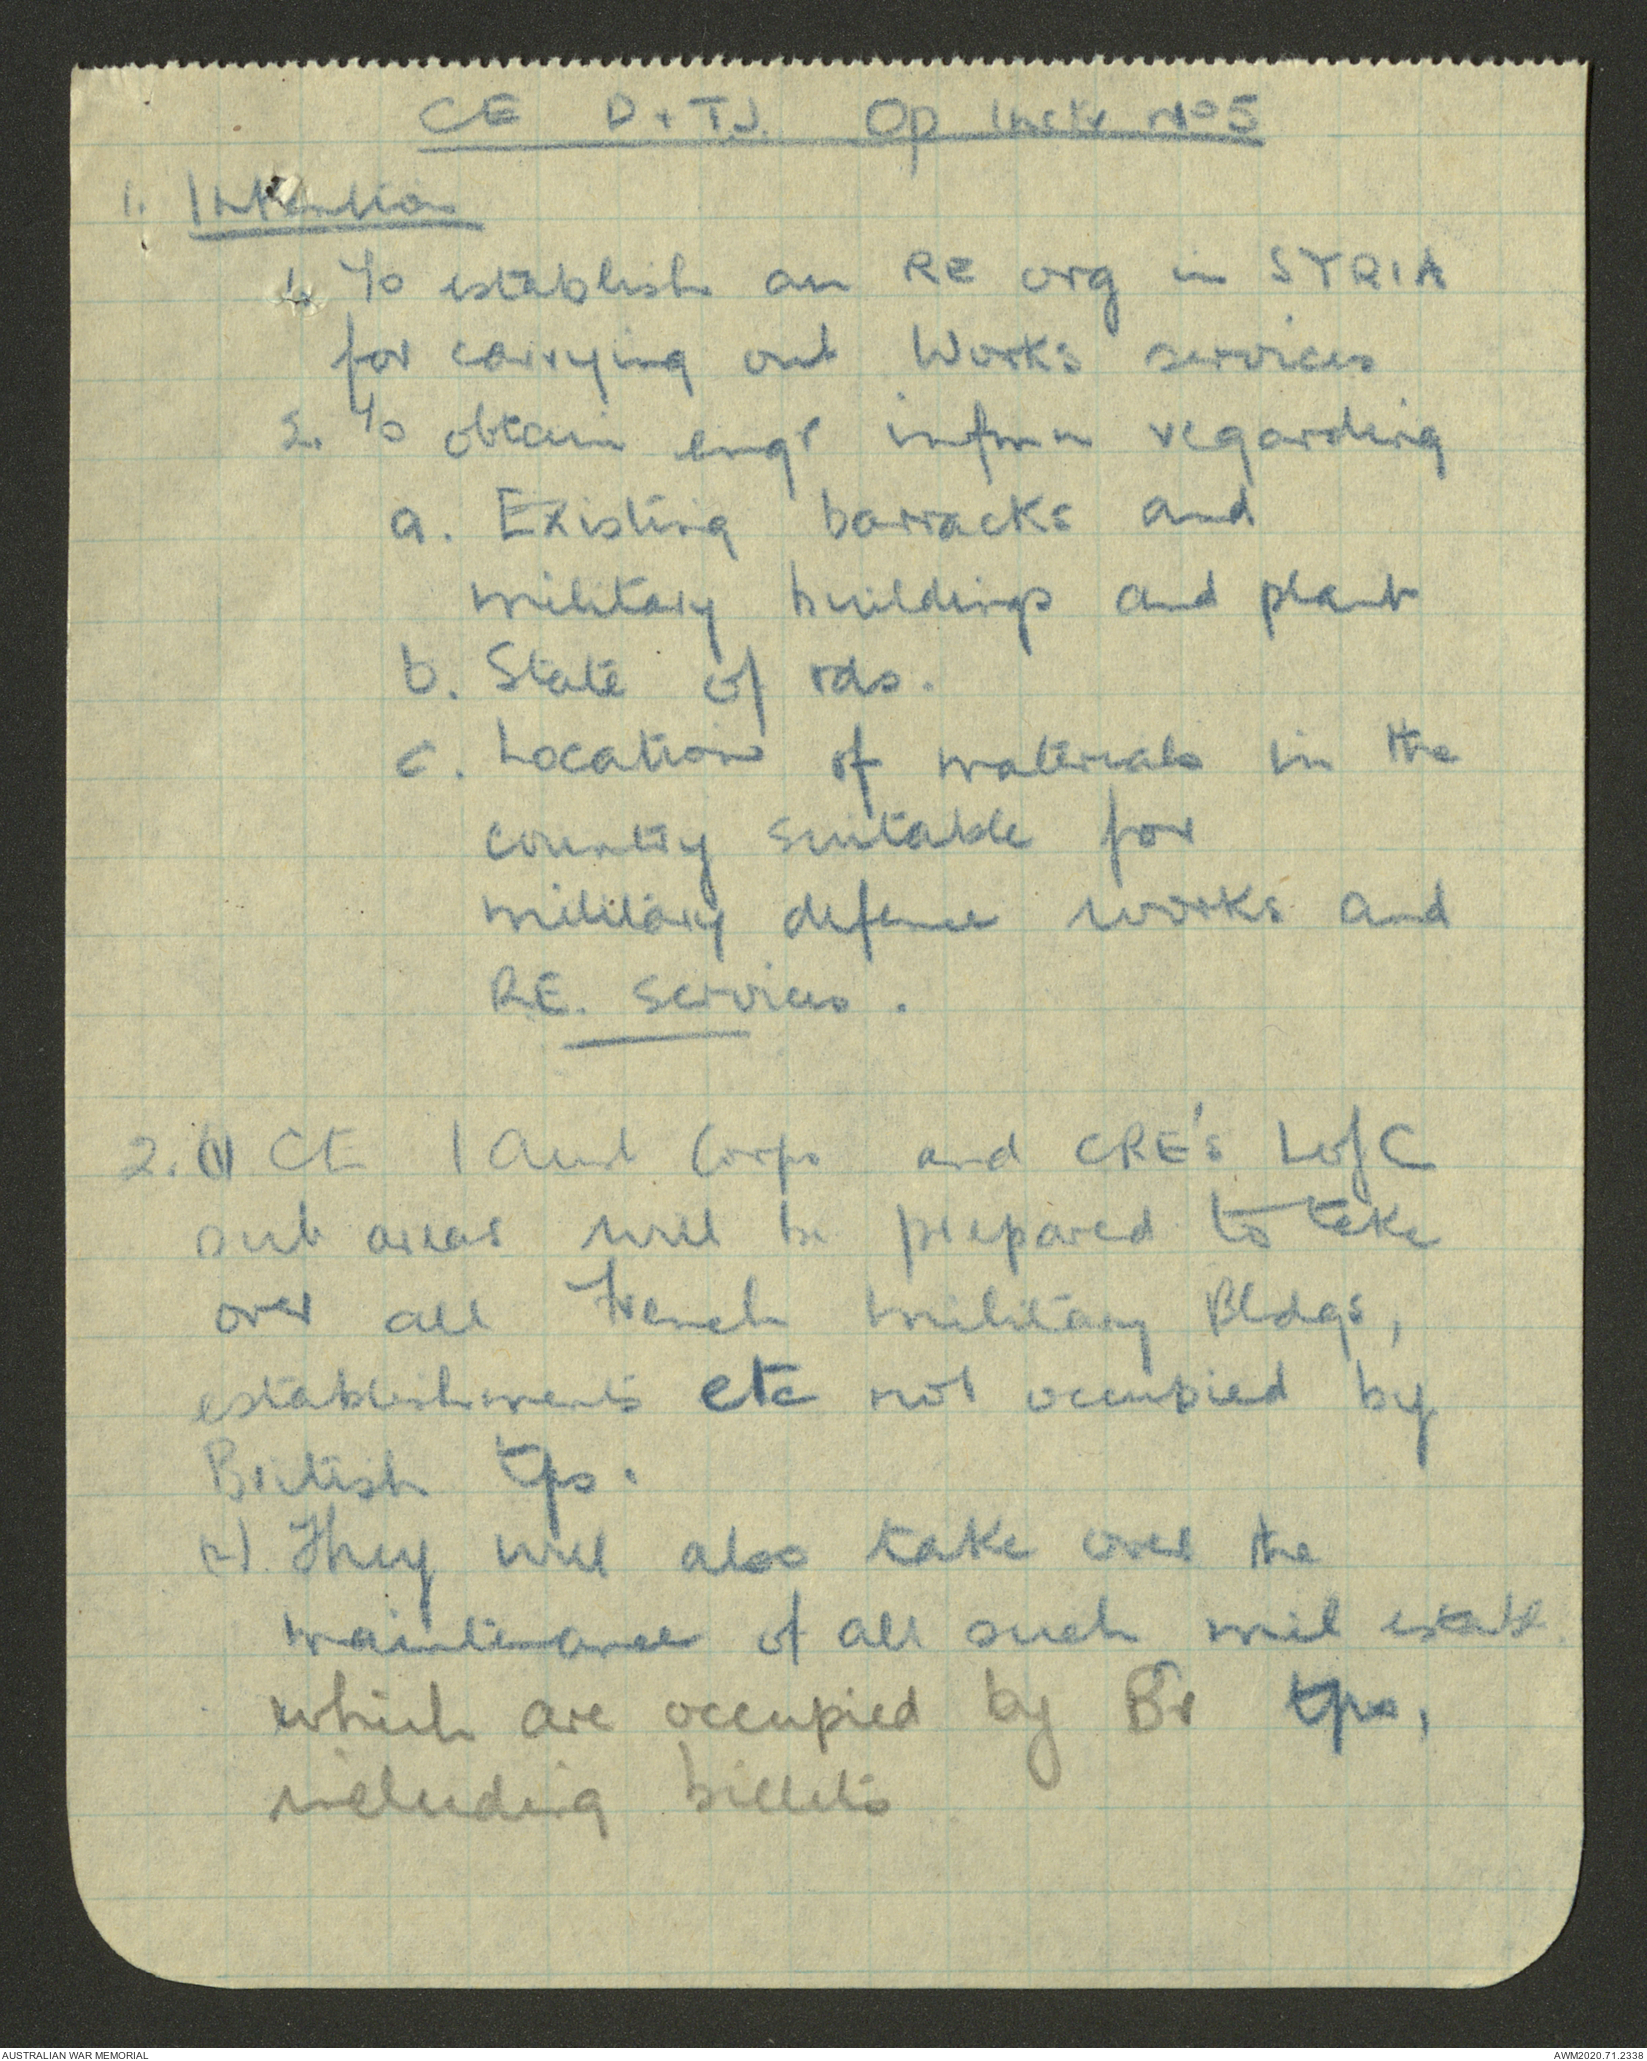 CE P & TJ. Op Instr No 5
1. Intention
1. To establish an RE org in SYRIA
for carrying out Works services
2. To obtain engr inform n regarding
a. Existing barracks and
military buildings and plant
b. State of rds.
c. Location of materials in the
country suitable for
military defence works and
RE. services.
2. (1) CE 1 Aust Corps and CRE's LofC
sub areas will be prepared to take
over all French military Bldgs,
establishments etc not occupied by
British tps.
(2). They will also take over the
maintenance of all such mil estab.
which are occupied by Br tps,
including billets
AUSTRALIAN WAR MEMORIAL
AWM2020.71.2338